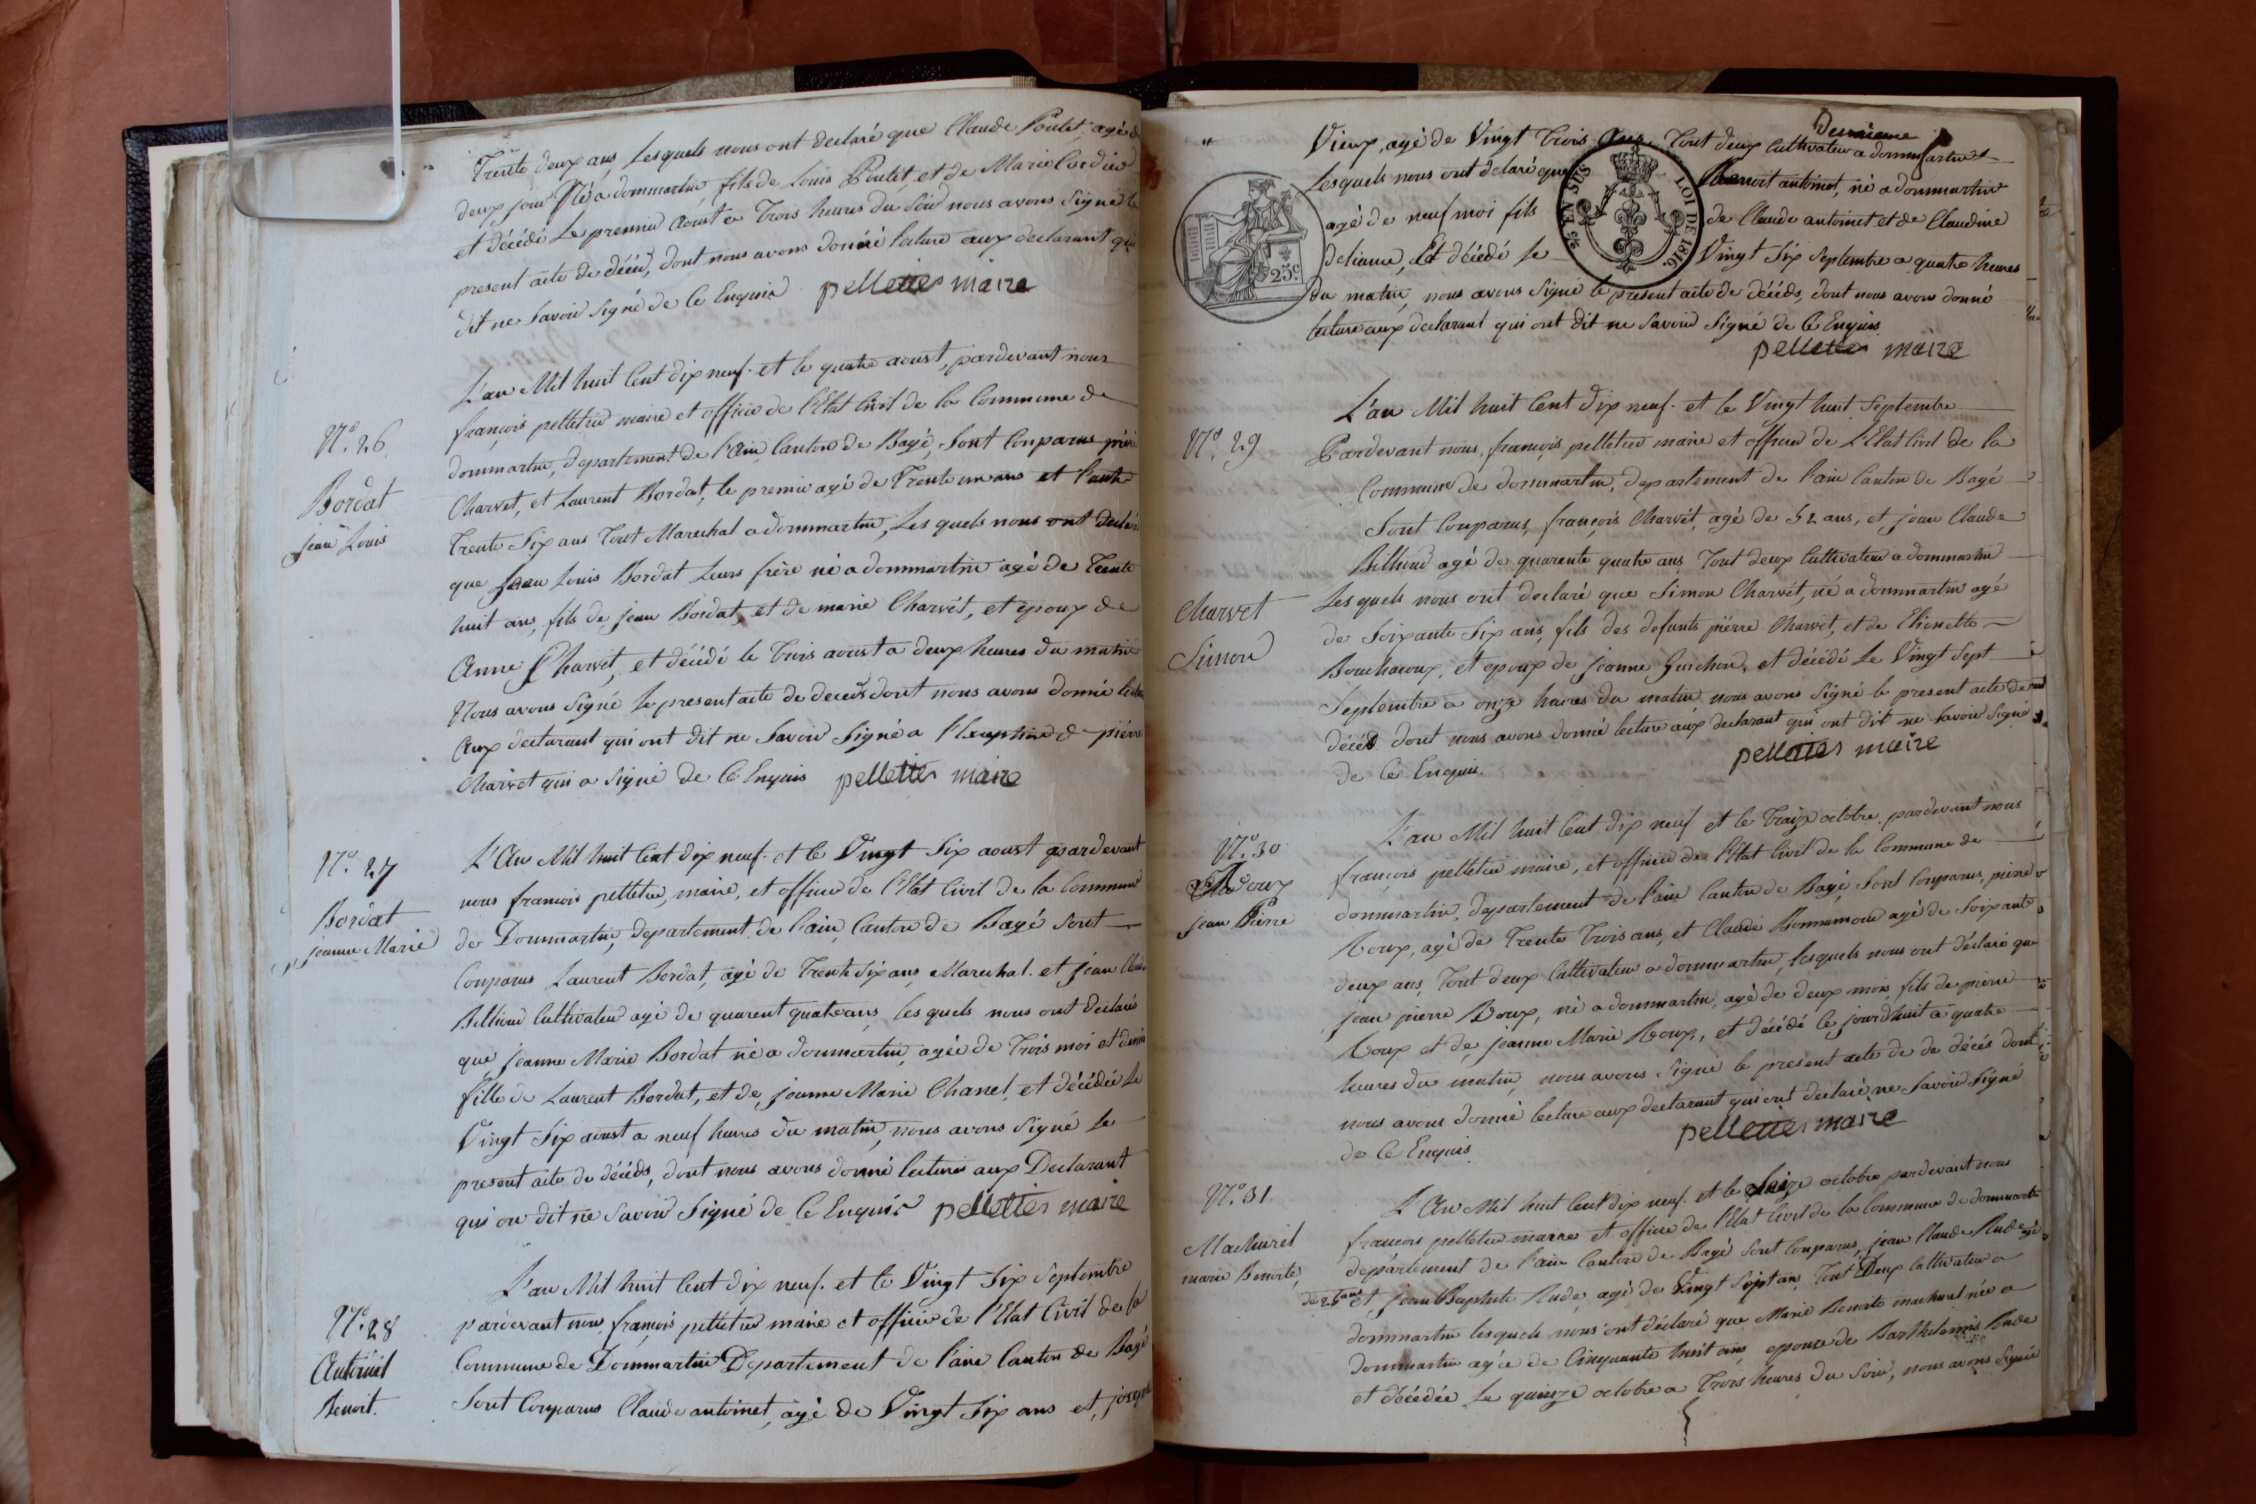 Trente deux ans, Lesquels nous ont declaré que Claude Poulet, agé de
deux jour Né a dommartin, fils de Louis Poulet et de Marie Cordier
et décédé Le premier Aoust a Trois heures du Soir nous avons Signé le
present acte de décés, dont nous avons donné lecture aux declarant qui
dit ne Savoir Signé de Ce Enquis pelletier maire
N.º 26
Bordat
jean Louis
L'an Mil huit Cent dix neuf. et le quatre aoust, pardevant nous
françois pelletier maire et officier de l'Etat Civil de la Commune de
dommartin, departement de l'ain Canton de Bagé, Sont Comparus pierre
Charvet, et Laurent Bordat, le premier agé de Trente un ans et l'autre
Trente Six ans Tout Marechal a dommartin, Les quels nous ont declaré
que Jean Louis Bordat Leurs frère né a dommartin agé de Trente
huit ans, fils de jean Bordat, et de marie Charvet, et epoux de
Anne Charvet, et décédé le trois aoust a deux heures du matin
Nous avons Signé le present acte de decés dont nous avons donné lecture
Aux declarant qui ont dit ne Savoir Signé a l'Exeption de pierre
Charvet qui a Signé de Ce Enquis pelletier maire
N.º 27
Bordat
jeanne Marie
L'An Mil huit Cent dix neuf. et le Vingt Six aoust pardevant
nous francois pelletier, maire, et officier de l'Etat Civil de la Commune
de Dommartin, departement de l'ain, Canton de Bagé Sont
Comparus Laurent Bordat, agé de Trente Six ans, Marechal. et jean Claude
Billioud Cultivateur agé de quarent quatre ans, les quels nous ont declaré
que, jeanne Marie Bordat né a dommartin, agée de Trois moi et demi
fille de Laurent Bordat, et de, jeanne Marie Chanel, et décédée Le
Vingt Six aoust a neuf heures du matin, nous avons Signé le
present acte de décéds, dont nous avons donné lecture aux Declarant
qui on dit ne Savoir Signé de Ce Enquis pelletier maire
N.º 28
Antoinet
Benoit.
L'an Mil huit Cent dix neuf. et le Vingt Six Septembre
pardevant nous, françois pelletier maire et officier de l'Etat Civil de la
Commune de Dommartin Departement de l'ain Canton de Bagé
Sont Comparus Claude antoinet, agé de Vingt Six ans et, joseph
Vieux, agé de Vingt Trois ans. Tout deux Cultivateur a dommartin
Lesquels nous ont declaré que Benoit antoinet, né a dommartin
agé de neuf moi fils de Claude antoinet et de Claudine
deliance, Et décédé le Vingt Six Septembre a quatre heures
du matin, nous avons Signé le present acte de décéds, dont nous avons donné
lecture aux declarant qui ont dit ne Savoir Signé de Ce Enquis.
pelletier maire
25.c
EN SUS LOI DE 1816.
N.º 29
Charvet
Simon
L'an Mil huit Cent dix neuf. et le Vingt huit Septembre
Pardevant nous, françois, pelletier maire et officier de L'Etat Civil de la
Commune de dommartin, departement de l'ain Canton de Bagé
Sont Comparus, françois Charvet, agé de 52 ans, et, jean Claude
Billioud agé de quarente quatre ans Tout deux Cultivateur a dommartin
Les quels nous ont declaré que Simon Charvet, né a dommartin agé
de Soixante Six ans, fils des defunts pierre Charvet, et de Etienette
Bouchacoux, et epoux de jeanne Guichon, et décédé Le Vingt Sept
Septembre a onze heures du matin nous avons Signé le present acte de
décéd dont nous avons donné lecture aux declarant qui ont dit ne Savoir Signé
de Ce Enquis.
pelletier maire
N.º 30
Roux
Jean Pierre
L'an Mil huit Cent dix neuf et le Traize octobre, pardevant nous
françois pelletier maire, et officier de l'Etat Civil de la Commune de
dommartin, departement de l'ain Canton de Bagé, Sont Comparus, pierre
Roux, agé de Trente Trois ans, et Claude Bonnamour agé de Soixante
deux ans, Tout deux Cultivateur a dommartin, lesquels nous ont déclaré que
jean pierre Roux, né a dommartin, agé de deux mois, fils de pierre
Roux et de, jeanne Marie Roux, et décédé le jourdhuit a quatre
heures du matin, nous avons Signe le present acte de de décés dont
nous avons donné lecture aux declarant qui ont declaré ne Savoir Signé
de Ce Enquis.
pelletier maire
N.º 31
Machurel
marie Benoite
L'An Mil huit Cent dix neuf. et le Saize octobre pardevant nous
francois pelletier maire et officier de l'Etat Civil de la Commune de dommartin
département de l'ain Canton de Bagé Sont Comparus, jean Claude Rude agé
et jean Baptiste Rude, agé de Vingt Sept an, Tout Deux Cultivateur a
dommartin lesquels nous ont déclaré que Marie Benoite machurel née a
dommartin agée de Cinquante huit ans, epouse de Barthelemie Rude
et décédée Le quinze octobre a Trois heures du Soir, nous avons Signé